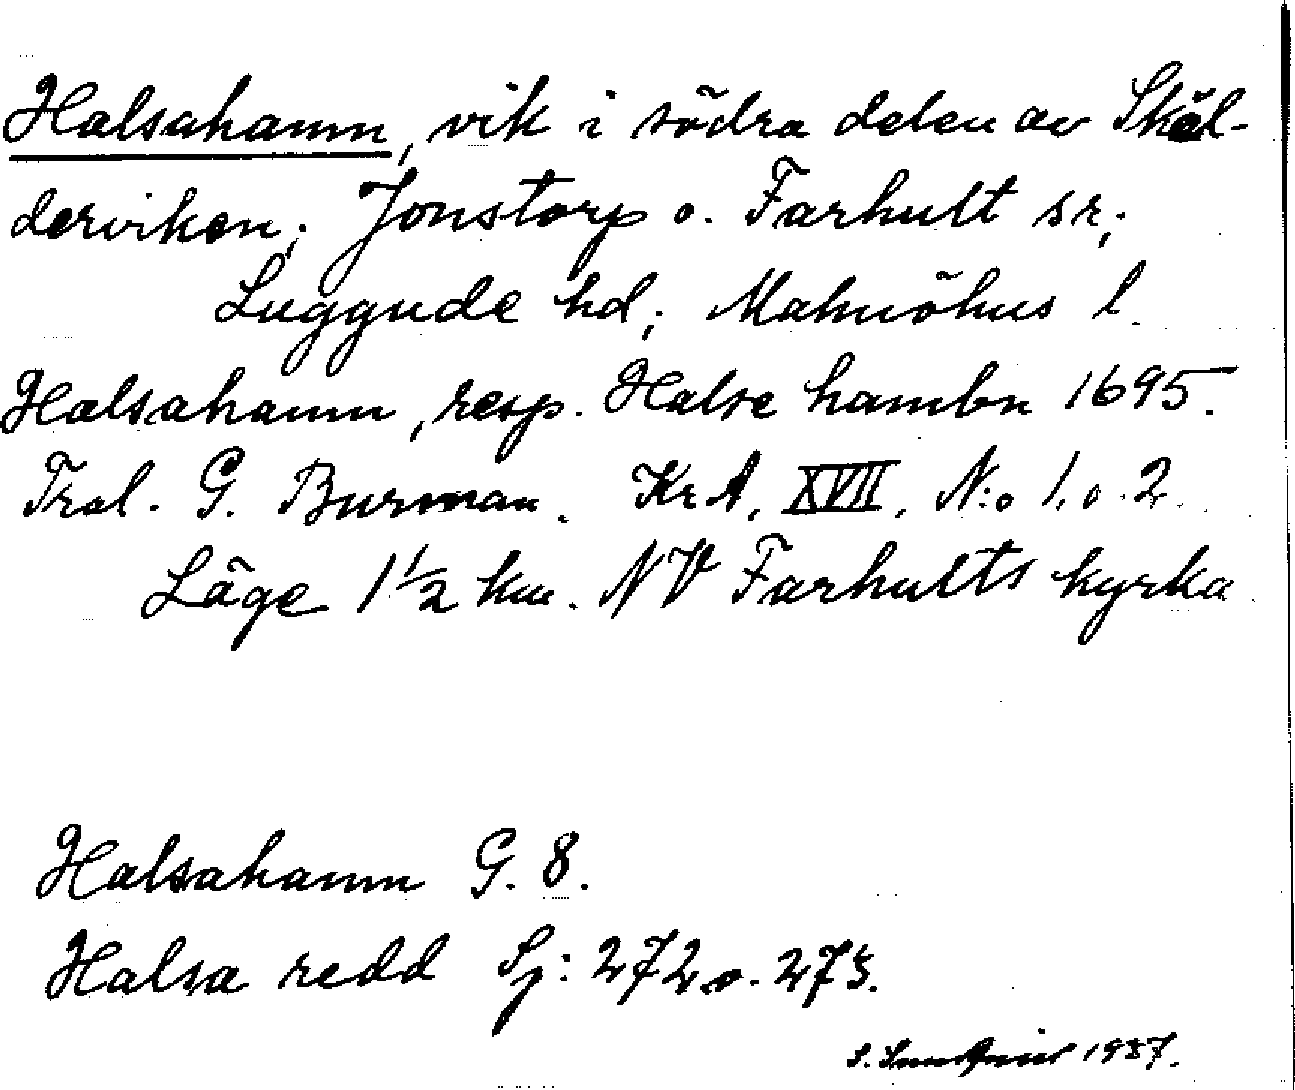 Halsahamn, vik i södra delen av Skäl-
derviken; Jonstorp o. Farhult sr;
Luggude hd; Malmöhus l.
Halsahamn, resp. Halse hambn 1695.
Tral. G. Burman. Kr A, XVII, N:o 1. o. 2.
Läge 1 1/2 km. NV Farhults kyrka.
Halsahamn G. 8.
Halsa redd Sj: 272 o. 273.
S. 1937.